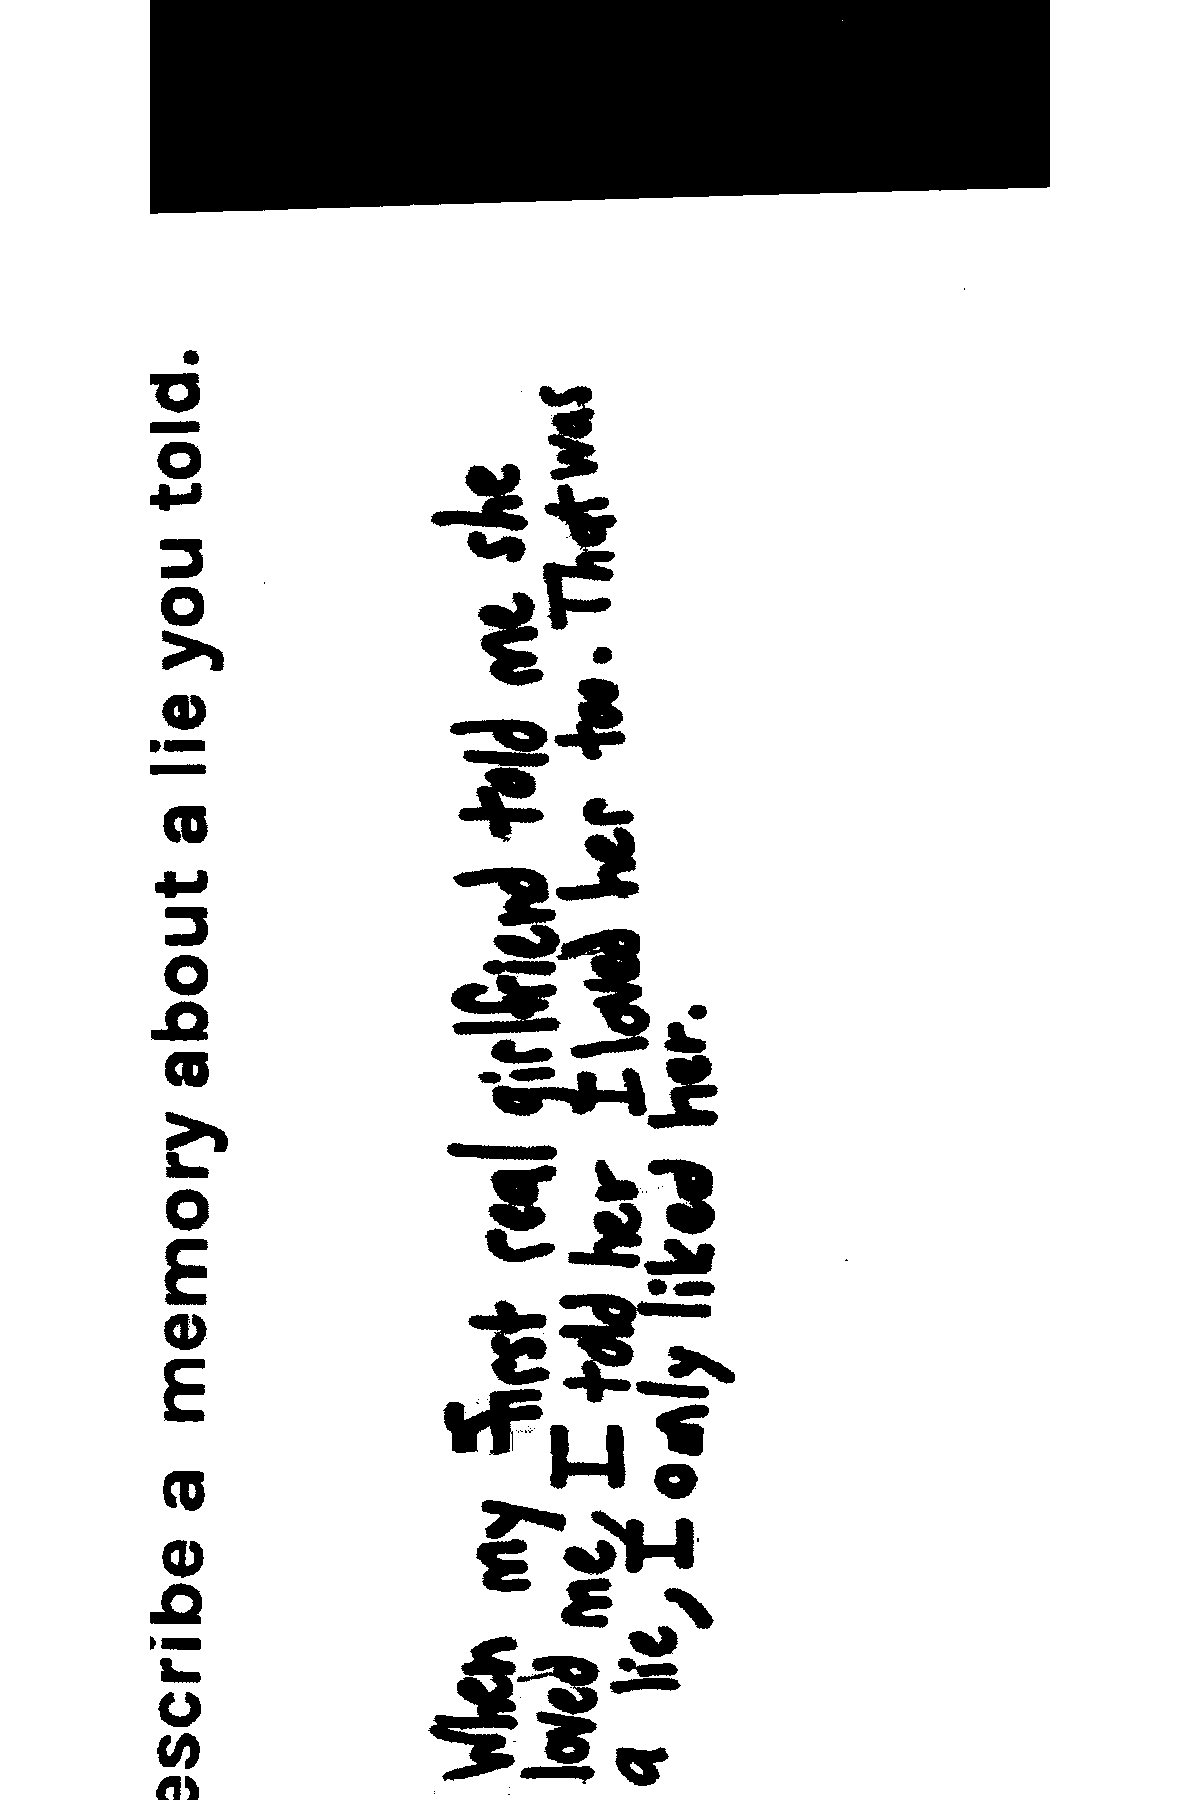 escribe a memory about a lie you told.
When my first real girlfriend told me she
loved me, I told her I loved her too. That was
a lie, I only liked her.